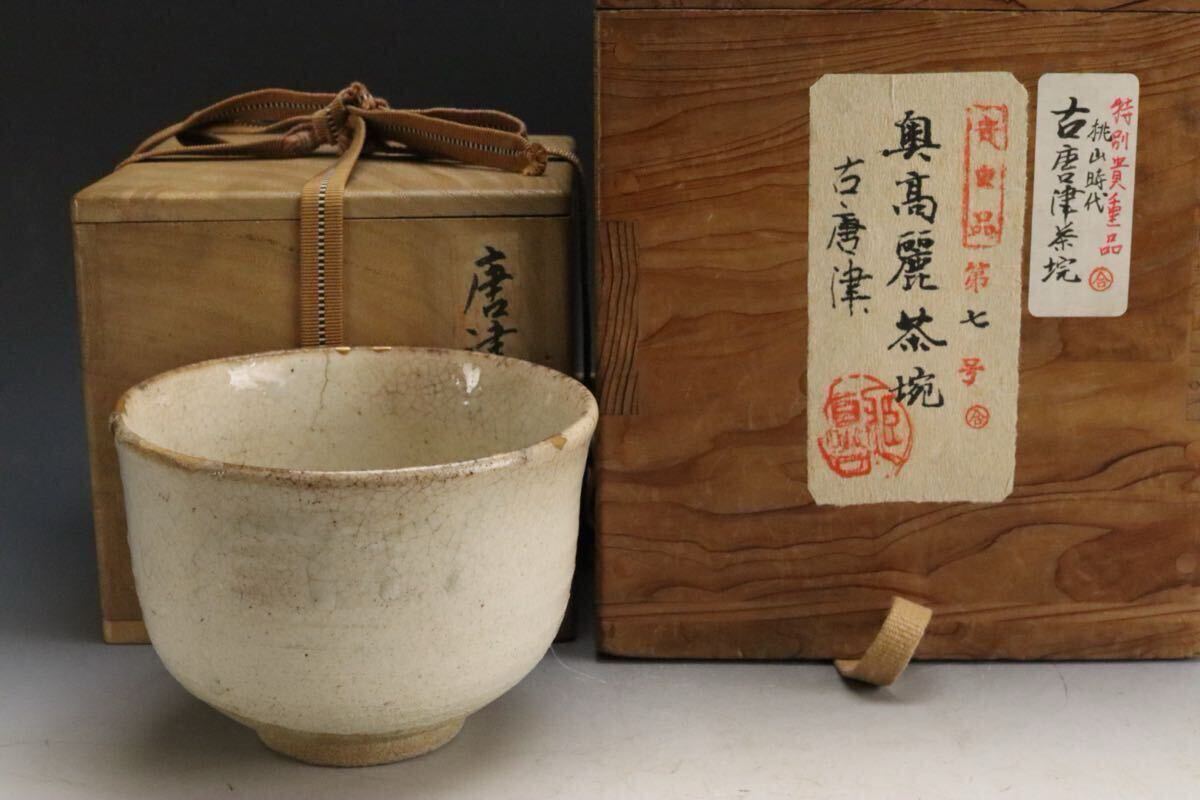 特別貴重品
桃山時代
古唐津茶埦
貴重品第七号
奥高麗茶埦
古唐津
唐津